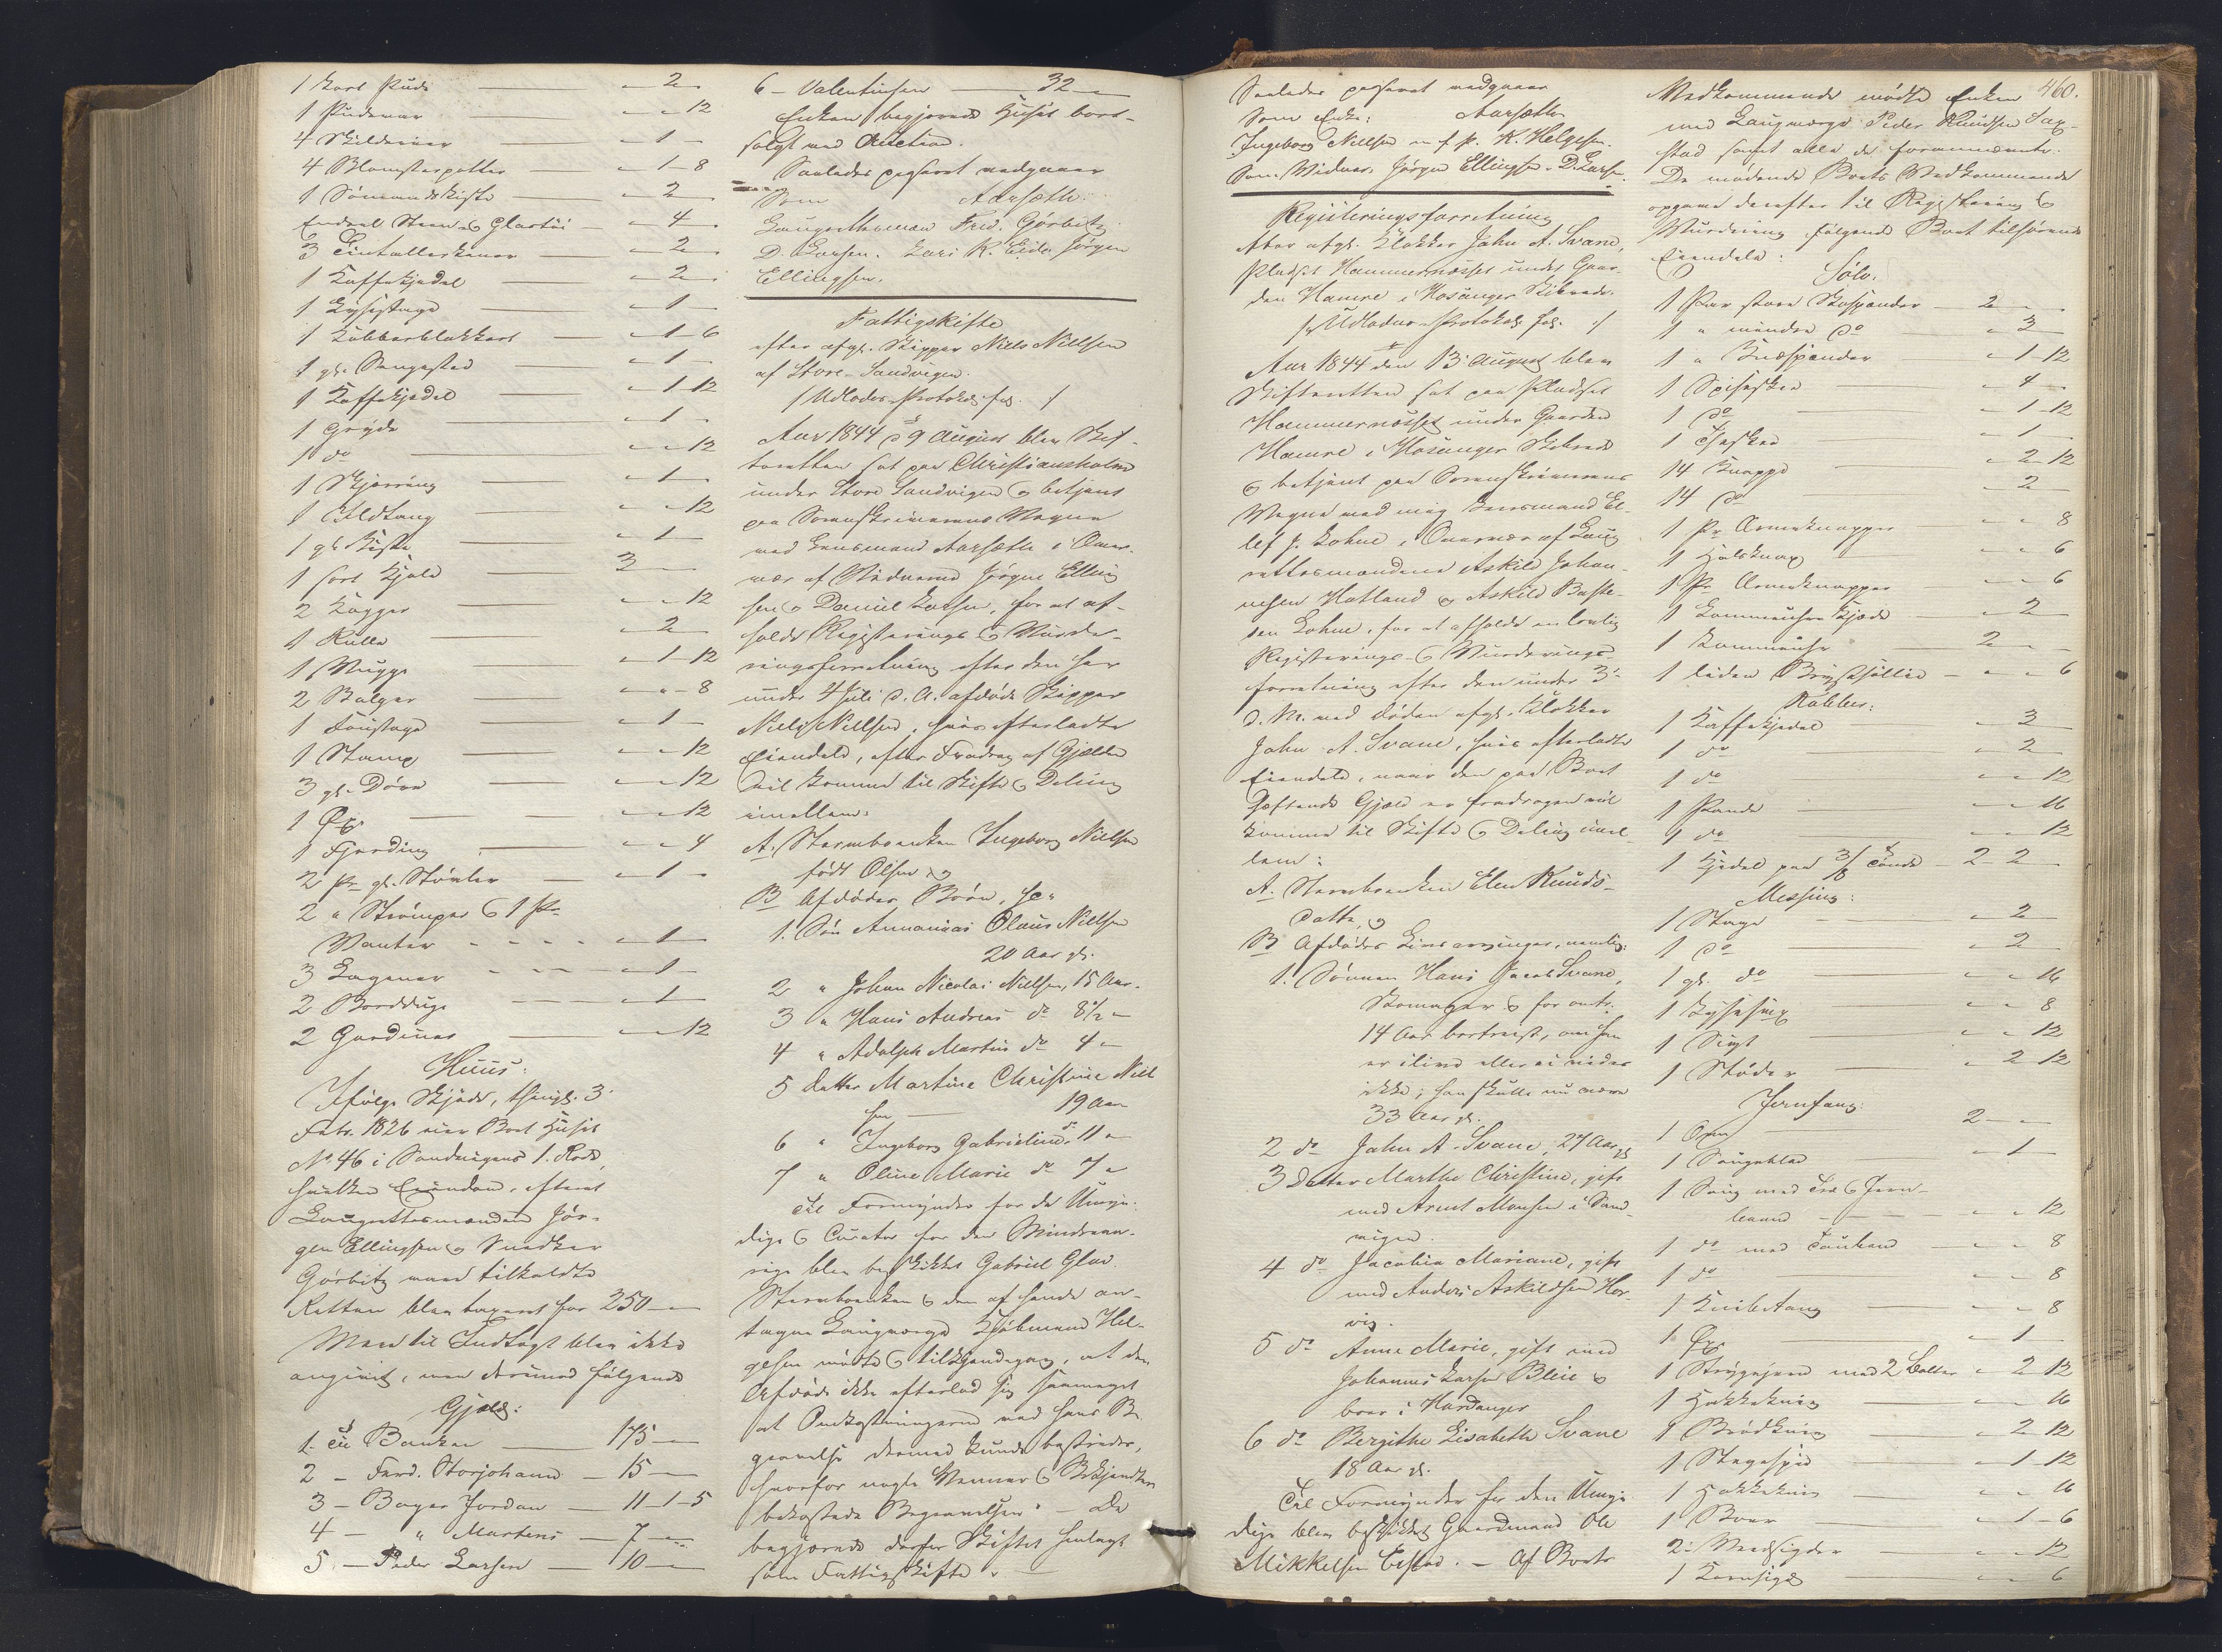 1 sort Pude — " 2 "
1 Pudevar — " " 12
4 Skilderier — " 1 "
4 Blomsterpotter — " 1 - 8
1 Sømandskiste — " 2 "
Endeel Steen & Glastøi — " 4 "
3 Tintallerkener — " 2 "
1 Kaffekjedel — " 2 "
1 Lysestage — " 1 "
1 Kobberblakker — " 1 - 6
1 gl. Sengested — " 1 "
1 Kaffekjedel — " 1 - 12
1 Gryde — " 1 "
1 do — " " 12
1 Skjæring — " 1 "
1 Ildtang — " " 12
1 gl. Kiste — " 1 "
1 sort Kjole — 3 "
2 Kagger — " " 12
1 Rulle — " 2 "
1 Vugge — " 1 - 12
2 Balger — " " - 8
1 Foustage — " 1 -
1 Stamp — " " 12
3 gl. Døre — " " 12
1 Øxe — " " 12
1 Fjerding — " " 4
2 Pr gl. Støvler — " 1 "
2 " Strømper & 1 Pr
Vanter — " 1 "
3 Lagener — " 1 "
2 Bordduge — " 1 "
2 Gardiner — " " 12
Huus:
Ifølge Skjøde, thingl. 3.
Febr. 1826 eier Boet Huset
No 46 i Sandvigens 1. Rode,
hvilken Eiendom, efterat
Laugrettesmændene Jør-
gen Ellingsen og Snedker
Görbitz vare tilkaldte
Retten blev taxeret for 250 — "
Mere til Indtægt blev ikke
angivet, men derimod følgende
Gjæld:
1. til Banken — 175 —
2 - Ferd. Storjohann — 15 —
3 - Bager Jordan — 11 - 1 - 5
4 - " Martens — 7 —
5. - Peder Larsen — 10 —
6 - Valentinsen — 32 —
Enken begjærede Huset bort-
solgt ved Auction.
Saaledes passeret vedgaaer
Som Aarsæth.
Laugværge Fred. Görbitz
D. Larsen. Lars K. Eide. Jørgen
Ellingsen.
Fattigskifte
efter afg. Skipper Niels Nielsen
af Store-Sandvigen.
/ Udlods-Protokol fol. /
Aar 1844 d 9 August blev Skif-
teretten sat paa Christiansholm
under Store Sandvigen & betjent
paa Sorenskriverens Vegne
ved Lensmand Aarsæth i Over-
vær af Vidnerne Jørgen Elling
sen & Daniel Larsen, for at af-
holde Registerings & Vurde-
ringsforretning efter den her
under 4 Juli d. A. afdøde Skipper
Niels Nielsen, hvis efterladte
Eiendele, efter Fradrag af Gjælden
vil komme til Skifte & Deling
imellem:
A. Stervboenken Ingeborg Nielsen
født Olsen, og
B Afdødes Børn, som
1. Søn Annanias Olaus Nielsen
20 Aar gl.
2 " Johan Nicolai Nielsen, 15 Aar.
3 " Hans Andreas do 8½ "
4 " Adolph Martin do 4 "
5 Datter Martine Christine Niel
sen — 19 Aar
6 " Ingeborg Gabrieline do 11 "
7 " Oline Marie do 7 "
Til Formynder for de Umyn-
dige & Curator for den Mindreaa-
rige blev beskikket Gabriel Glad.
Stervboenken & den af hende an-
tagne Laugværge Kjøbmand Hel-
gesen mødte & tilkjendegav, at den
Afdøde ikke efterlod sig saameget
at Omkostningerne ved hans Be-
gravelse dermed kunde bestrides,
hvorfor nogle Venner & Bekjendtere
bekostede Begravelsen. — De
begjærede derfor Skiftet henlagt
som Fattigskifte.
Saaledes passeret vedgaaer
Som Enke: Aarsæth
Ingeborg Nielsen m. f. p. K. Helgesen.
Som Vidner. Jørgen Ellingsen. D. Larsen.
Registeringsforretning
efter afg. Klokker John A. Svane,
Pladset Hammernæsset under Gaar-
den Hamre i Hosanger Skibrede.
/ Udlods-Protokol fol. /
Aar 1844 den 13 August blev
Skifteretten sat paa Pladset
Hammernæsset under Gaarden
Hamre i Hosanger Skibrede
& betjent paa Sorenskriverens
Vegne ved mig Lensmand El-
lef J. Lohne, i Overvær af Laug
rettesmændene Askild Johan-
nesen Hatland & Askild Baste-
sen Lohne, for at afholde en lovlig
Registerings- & Vurderings
forretning efter den under 3'
d. M. ved Døden afg. Klokker
John A. Svane, hvis efterladte
Eiendele, naar den paa Boet
heftende Gjæld er fradragen vil
komme til Skifte & Deling imel-
lem:
A. Stervboenken Elen Knuds-
datter, og
B Afdødes Livsarvinger, nemlig:
1. Sønnen Hans Jacob Svane,
Skomager & for omtr.
14 Aar bortreist, om han
er ilive eller ei vides
ikke; han skulle nu være
33 Aar gl.
2 do John A. Svane, 27 Aar gl
3 Datter Marthe Christine, gift
med Arent Monsen i Sand
vigen.
4 do Jacobia Mariane, gift
med Anders Askildsen Her-
vig.
5 do Anne Marie, gift med
Johannes Larsen Bleie &
boer i Hardanger
6 do Bergithe Lisabeth Svane
18 Aar gl.
Til Formynder for den Umyn
dige blev beskikket Gaardmand Ole
Mikkelsen Eistad. - Af Boets
460.
Vedkommende mødte Enken
med Laugværge Peder Knudsen Sax-
stad samt alle de forannævnte.
De mødende Boets Vedkommende
opgave derefter til Registering &
Vurdering følgende Boet tilhørende
Eiendele:
Sølv.
1 Par store Skospænder — 2 —
1 " mindre do — " 3 "
1 " Knæspænder — " 1 - 12
1 Spiseskee — " 4 "
1 do — " 1 - 12
1 Theskee — " 1 "
14 Knappe — " 2 - 12
14 do — " 2 "
1 Pr Ærmeknapper — " " 8
1 Halsknap — " " 6
1 Pr Ærmeknapper — " " 6
1 Lommeuhrs Kjæde — " 2 "
1 Lommeuhr — 2 " "
1 liden Brystsøllie — " " 6
Kobber:
1 Kaffekjedel — " 3 "
1 do — " 2 "
1 do — " " 12
1 Pande — " " 16
1 do — " " 12
1 Kjedel paa 3/8 Tønde — 2 - 2 "
Messing:
1 Stage — " 2 "
1 do — " 2 "
1 gl. do — " " 16
1 Lysesax — " " 8
1 Sigt — " " 12
1 Støder — " 2 - 12
Jernfang:
1 Ovn — 2 - "
1 Saugeblad — " 1 "
1 Saug med Træ & Jern-
baand — " " 12
1 do med Tauhand — " " 8
1 do — " " 8
1 Knibetang — " " 8
1 Øxe — " 1 "
1 Strygejern med 2 Bolter " 2 12
1 Hakkekniv — " " 16
1 Brødkniv — " 2 - 12
1 Stegespid — " 1 - 12
1 Hakkekniv — " " 16
1 Boer — " 1 - 6
2 Vedsigder — " " 12
1 Kornsigd — " " 6